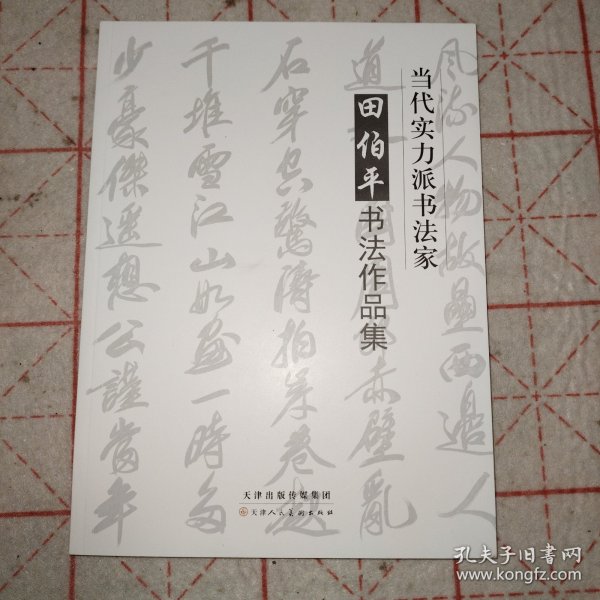 当代实力派书法家
田伯平书法作品集
風流人物故壘西邊人
道赤壁亂
石穿空驚濤拍岸卷起
千堆雪江山如畫一時多
少豪傑遥想公謹當年
天津出版传媒集团
天津人民美術出版社
孔夫子旧书网
www.kongfz.com